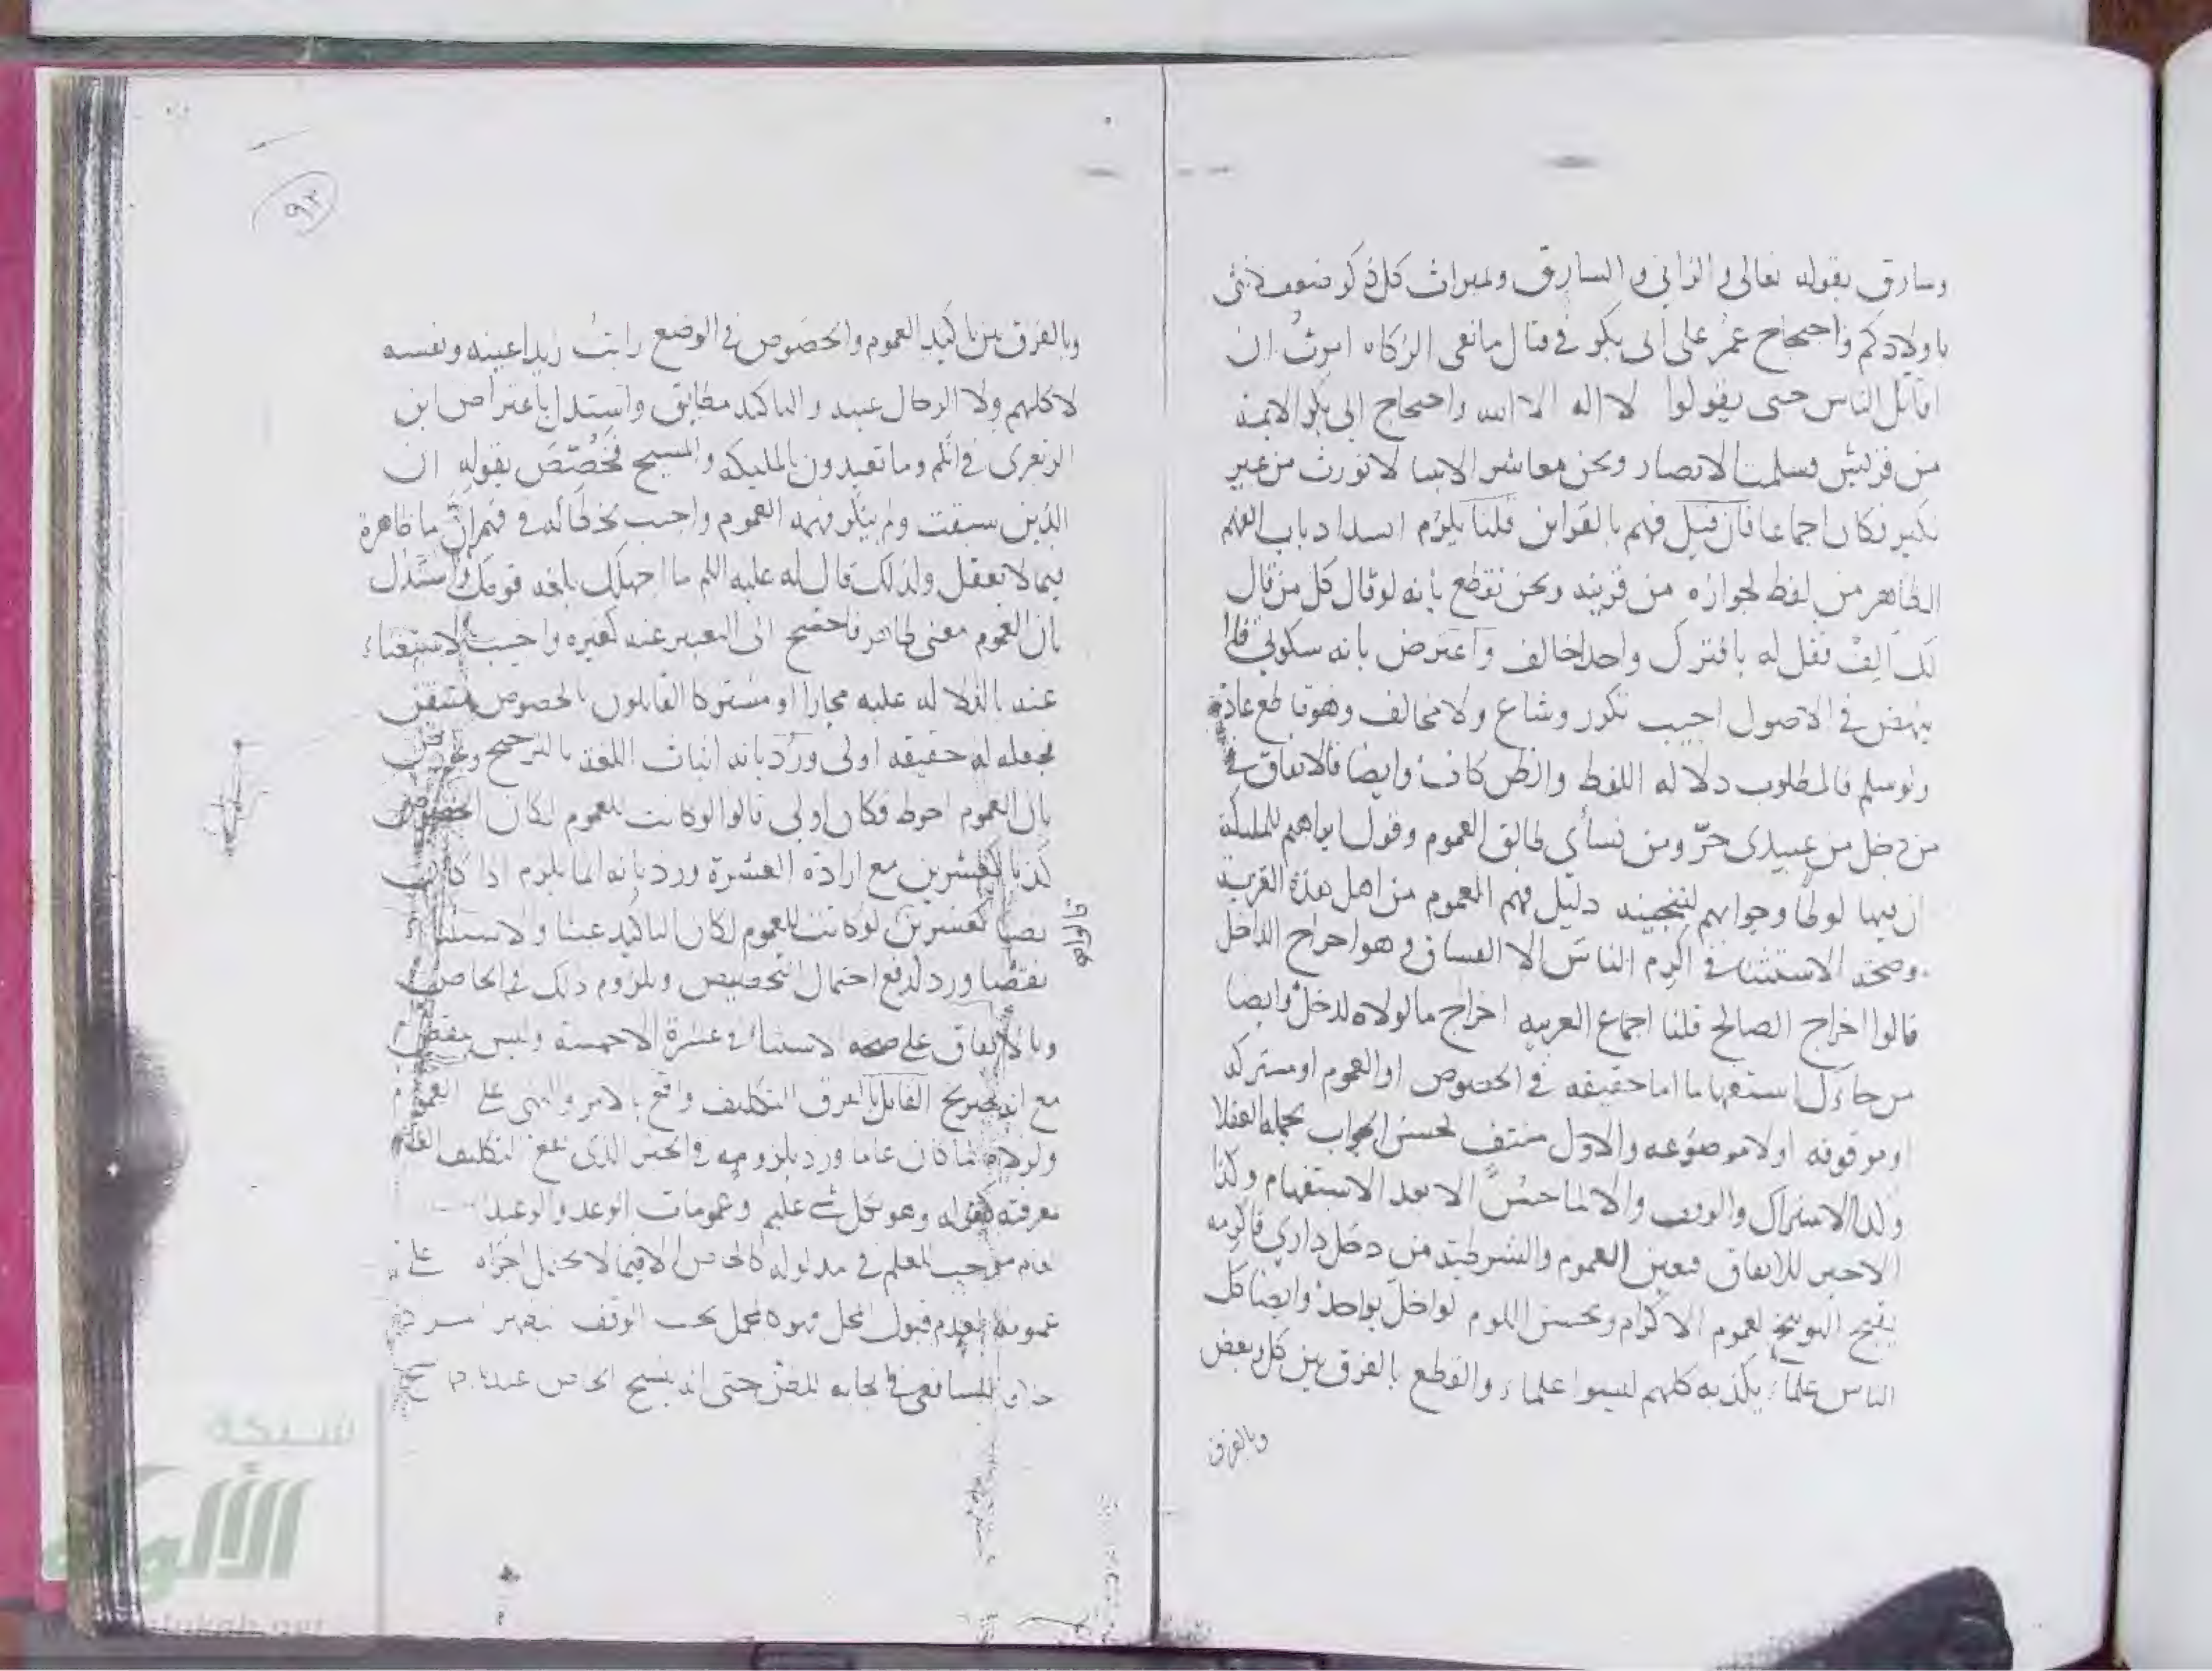 وسارق بقوله تعالى والزاني والسارق وبميراث كل ذكر ضعف انثى
باولادكم واحتجاج عمر على ابى بكر في قتال مانعى الزكاه امرت ان
اقاتل الناس حتى يقولوا لا اله الا الله واحتجاج ابى بكر الايمة
من قريش فسلمت الانصار ونحن معاشر الانبيا لا نورث من غير
نكير فكان اجماعا فان قيل فهم بالقراين قلنا يلزم انسداد باب الفهم
الظاهر من لفظ لجوازه من قرينه ونحن نقطع بانه لو قال كل من قال
لك الف فقل له با فترك واحدا خالف واعترض بانه سكوتي فلا
ينهض في الاصول اجيب تكرر وشاع ولا مخالف وهو قاطع عادة
ولو سلم فالمطلوب دلاله اللفظ والظن كاف وايضا فالاتفاق في
من دخل من عبيدى حر ومن نسأى طالق العموم وقول ابراهيم للمليكة
ان فيها لوطا وجوابهم لننجينه دليل فهم العموم من اهل هذه القرية
وصحة الاستثنا في اكرم الناس الا الفساق وهو اخراج الداخل
قالوا اخراج الصالح قلنا اجماع العربيه اخراج ما لولاه لدخل وايضا
من جاءك استفهاما اما حقيقه في الخصوص او العموم او مشتركه
او موقوفه او لا موضوعه والاول منتف لحسن الجواب بجمله العقلا
وكذا الاشتراك والوقف والا لما حسن الا بعد الاستفهام وكذا
الاخير للاتفاق فعين العموم والشرطية من دخل داري فاكرمه
يقبح التوبيخ لعموم الاكرام ويحسن اللوم لو اخل بواحد وايضا كل
الناس علماء يكذبه كلهم ليسوا علماء والقطع بالفرق بين كل وبعض
وبالفرق
٩٢
وبالفرق بين تاكيد العموم والخصوص في الوضع رايت زيدا عينه ونفسه
لا كلهم ولا الرجال عينه والتاكيد مطابق واستدل باعتراض ابن
الزبعرى في انكم وما تعبدون بالمليكه والمسيح فخصص بقوله ان
الذين سبقت ولم ينكر فهمه العموم واجيب بخطائه في فهم ان ما ظاهرة
فيما لا يعقل ولذلك قال له عليه السلم ما اجهلك بلغه قومك واستدل
بان العموم معنى ظاهر فاحتيج الى التعبير عنه كغيره واجيب الاستغناء
عنه بالدلاله عليه مجازا او مشتركا القايلون بالخصوص متيقن
فجعله له حقيقه اولى ورد بانه اثبات اللغه بالترجيح
بان العموم احوط فكان اولى قالوا لو كانت للعموم لكان
كذبا كعشرين مع ارادة العشرة ورد بانه انما يلزم اذا كانت
نصا كعشرين لو كانت للعموم لكان التاكيد عبثا والاستثنا
قالوا لو
نقضا ورد لدفع احتمال التخصيص وبلزوم ذلك في الخاص
وبالاتفاق على صحه الاستثنا في عشرة الا خمسة وليس بنقض
مع انه صريح القايل بالفرق التكليف واقع بالامر والنهى على العموم
ولولاه لما كان عاما ورد بلزومه في الخبر الذى يقع التكليف العام
بمعرفته كقوله وهو بكل شي عليم وعمومات الوعد والوعيد
العام موجب للعلم في مدلوله كالخاص الا فيما لا يحتمل اجراه على
عمومه لعدم قبول المحل فهو كالمجمل يجب الوقف
الشافعى في ايجابه الظن حتى انه ينسخ الخاص عندنا
شبكة
الألوكة